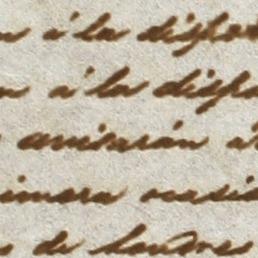 á la dispo
á la dispo
avisarán á
imera ocasi
de Londres